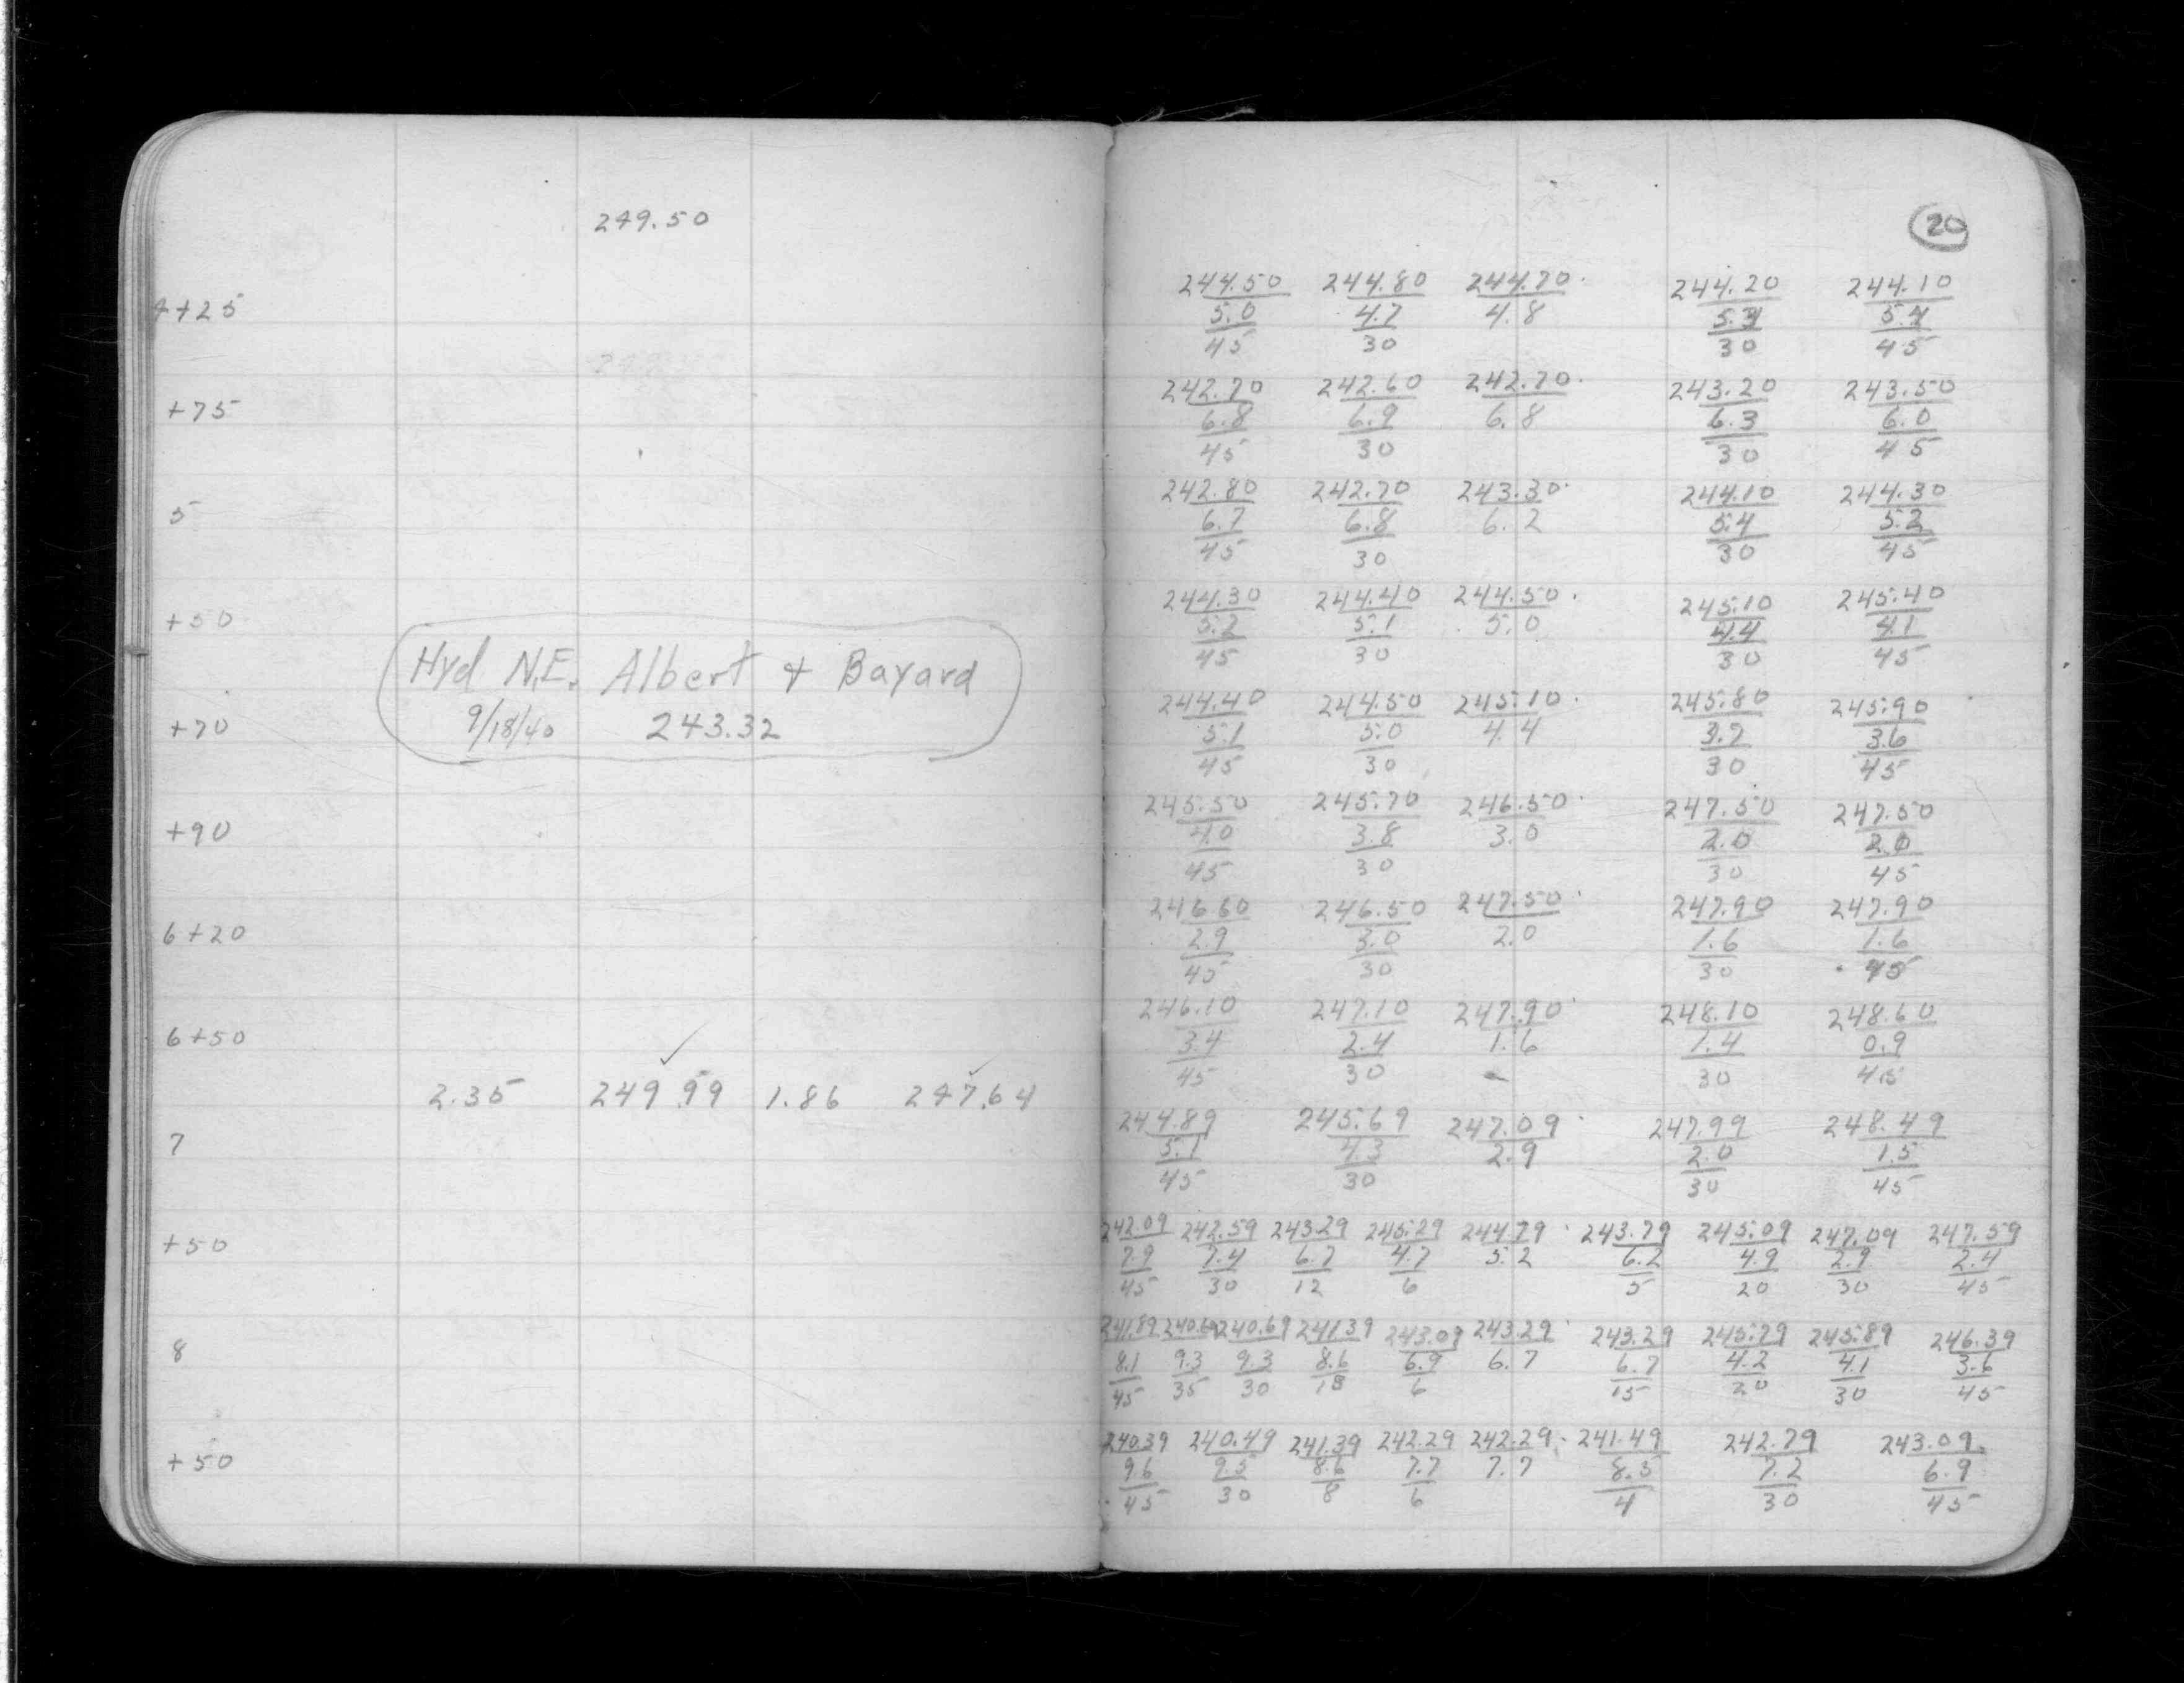 249.50
20
4+25 244.50 244.80 244.70 244.20 244.10
5.0 4.7 4.8 5.3 5.4
45 30 30 45
+75 242.70 242.60 242.70 243.20 243.50
6.8 6.9 6.8 6.3 6.0
45 30 30 45
5 242.80 242.70 243.30 244.10 244.30
6.7 6.8 6.2 5.4 5.2
45 30 30 45
+50 244.30 244.40 244.50 245.10 245.40
5.2 5.1 5.0 4.4 4.1
45 30 30 45
Hyd N.E. Albert + Bayard
9/18/40 243.32
+70 244.40 244.50 245.10 245.80 245.90
5.1 5.0 4.4 3.7 3.6
45 30 30 45
+90 245.50 245.70 246.50 247.50 247.50
4.0 3.8 3.0 2.0 2.0
45 30 30 45
6+20 246.60 246.50 247.50 247.90 247.90
2.9 3.0 2.0 1.6 1.6
45 30 30 45
6+50 246.10 247.10 247.90 248.10 248.60
3.4 2.4 1.6 1.4 0.9
45 30 30 45
2.35 249.99 1.86 247.64
7 244.89 245.69 247.09 247.99 248.49
5.1 4.3 2.9 2.0 1.5
45 30 30 45
+50 242.09 242.59 243.29 245.29 244.79 243.79 245.09 247.09 247.59
7.9 7.4 6.7 4.7 5.2 6.2 4.9 2.9 2.4
45 30 12 6 5 20 30 45
8 241.89 240.69 240.69 241.39 243.09 243.29 243.29 245.79 245.89 246.39
8.1 9.3 9.3 8.6 6.9 6.7 6.7 4.2 4.1 3.6
45 35 30 18 6 15 20 30 45
+50 240.39 240.49 241.39 242.29 242.29 241.49 242.79 243.09
9.6 9.5 8.6 7.7 7.7 8.5 7.2 6.9
45 30 8 6 4 30 45